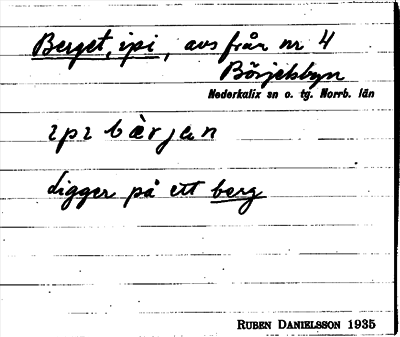 Berget, ipi, avs från nr 4
Börjelsbyn
Nederkalix sn o. tg. Norrb. län
ɩpɩ bèrjan
Ligger på ett berg
RUBEN DANIELSSON 1935